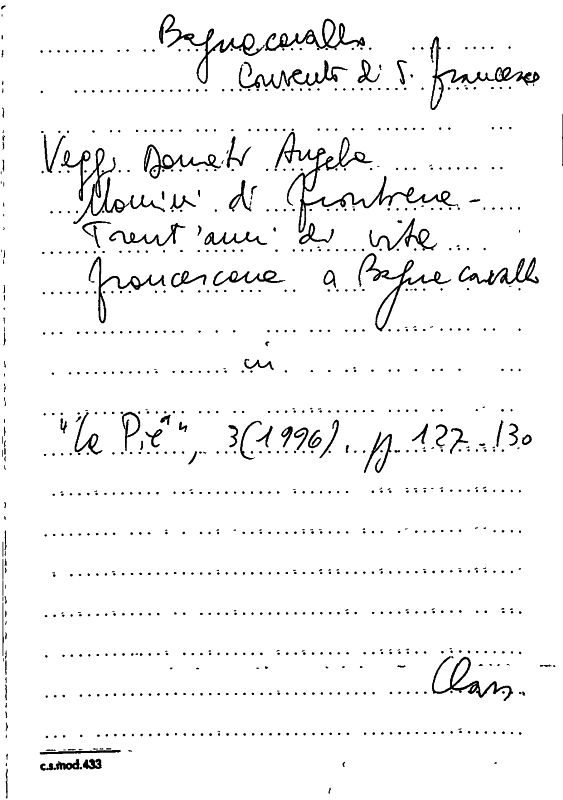 Bagnacavallo
Convento di S. Francesco
Veggi Donati Angela
Uomini di frontiera -
Trent'anni di vita
francescana a Bagnacavallo
in
"La Piê", 3(1996), pp. 127-130
Class.
c.s.mod.433